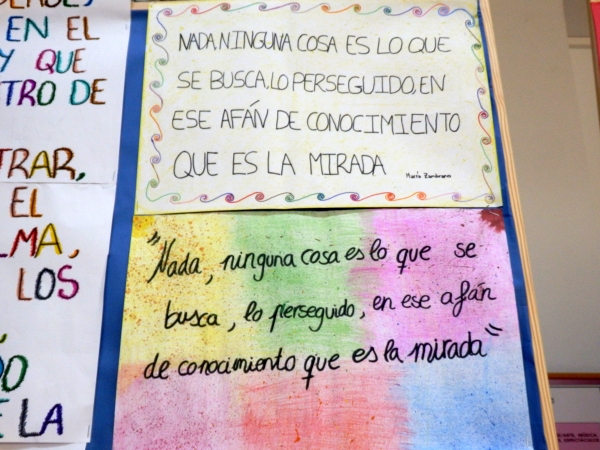 EN EL
Y QUE
TRO DE
TRAR,
EL
LMA,
LOS
E LA
NADA NINGUNA COSA ES LO QUE
SE BUSCA, LO PERSEGUIDO, EN
ESE AFÁN DE CONOCIMIENTO
QUE ES LA MIRADA
María Zambrano
"Nada, ninguna cosa es lo que se
busca, lo perseguido, en ese afán
de conocimiento que es la mirada"